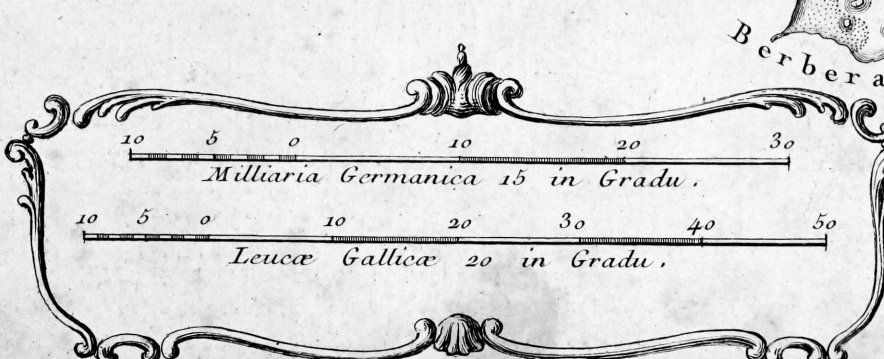 Berbera
10 5 0 10 20 30
Milliaria Germanica 15 in Gradu.
10 5 0 10 20 30 40 50
Leucæ Gallicæ 20 in Gradu.